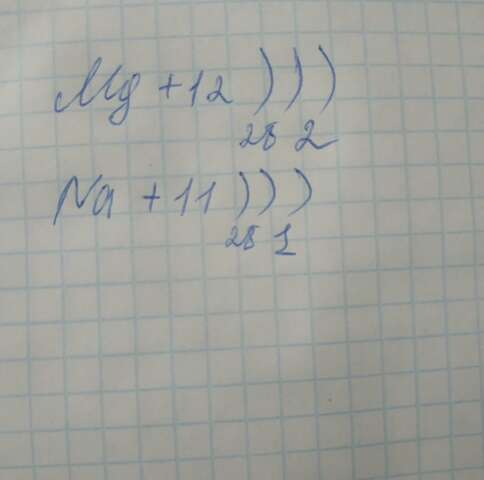 Mg +12 ) ) )
28 2
Na +11 ) ) )
28 1